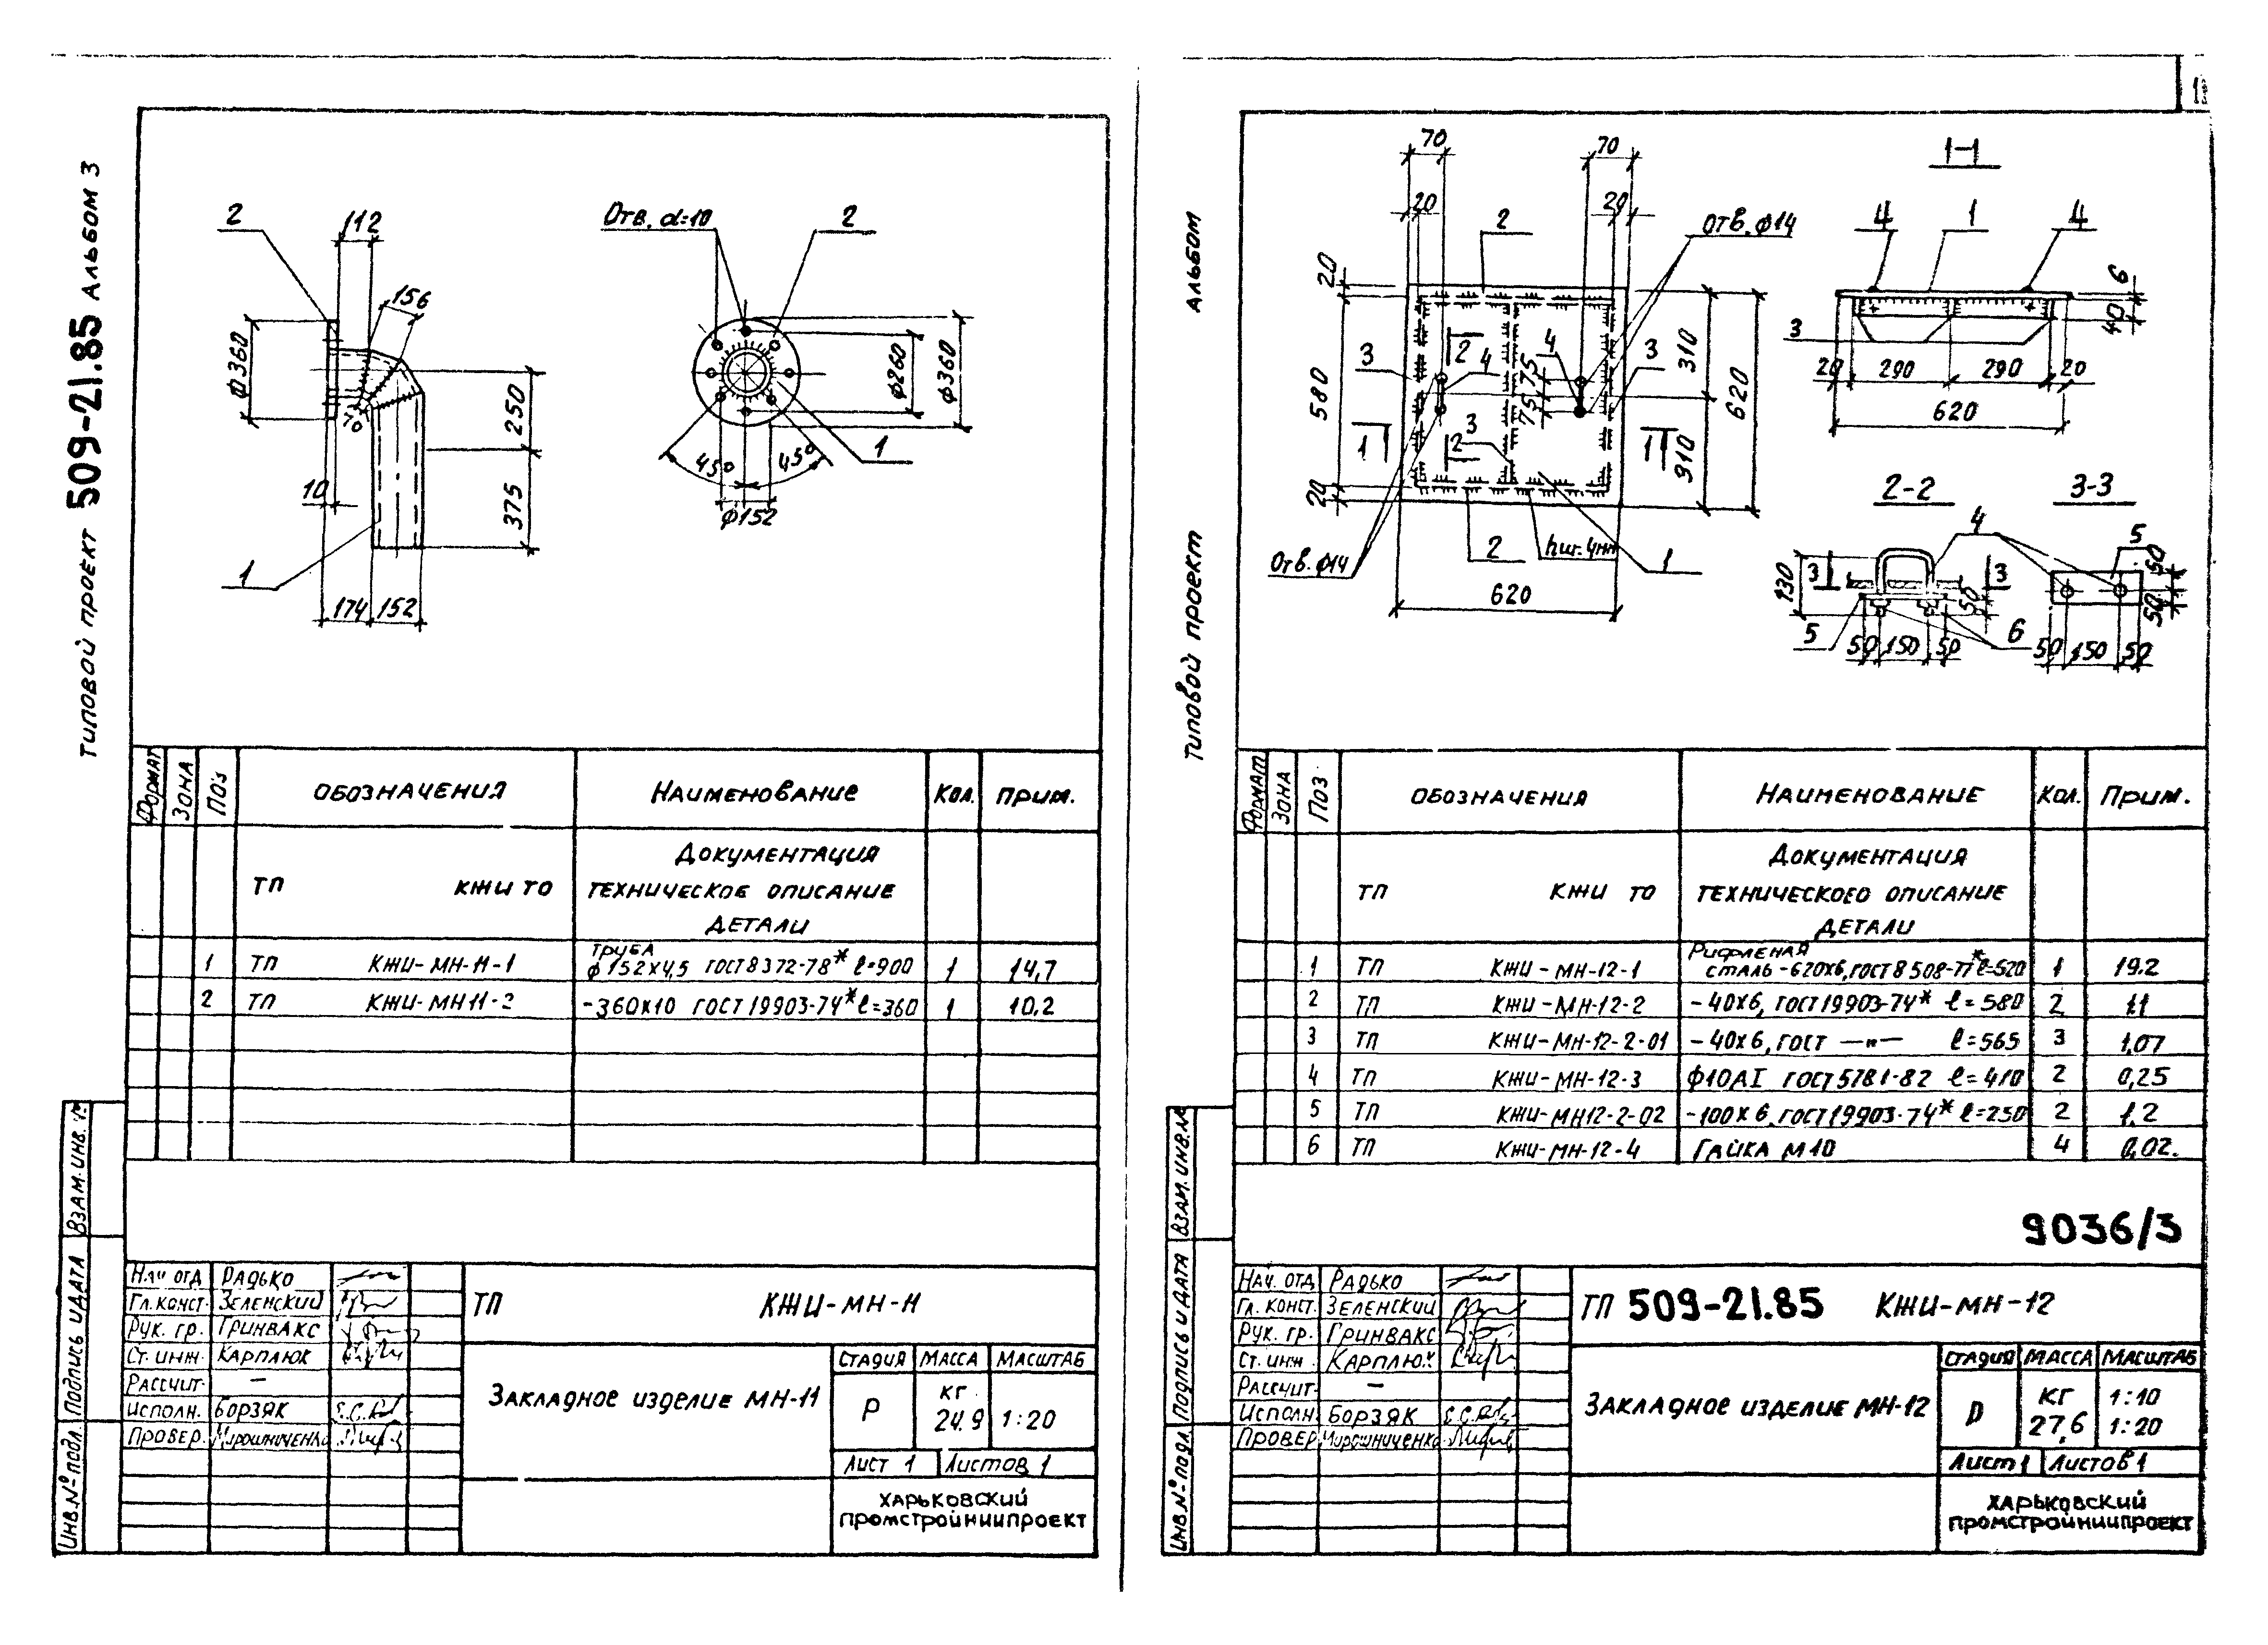 ТИПОВОЙ ПРОЕКТ 509-21.85 АЛЬБОМ 3
2
112
156
Ф360
70
250
375
10
1
174 152
Отв. d=10
2
Ф260
Ф360
1
45° 45°
Ф152
ФОРМАТ ЗОНА ПОЗ ОБОЗНАЧЕНИЯ НАИМЕНОВАНИЕ КОЛ. ПРИМ.
ДОКУМЕНТАЦИЯ
ТП КЖИ ТО ТЕХНИЧЕСКОЕ ОПИСАНИЕ
ДЕТАЛИ
ТРУБА
1 ТП КЖИ-МН-11-1 Ф152х4,5 ГОСТ 8372-78* ℓ=900 1 14,7
2 ТП КЖИ-МН11-2 -360х10 ГОСТ 19903-74* ℓ=360 1 10,2
ИНВ.№ПОДЛ. ПОДПИСЬ И ДАТА ВЗАМ.ИНВ.№
НАЧ ОТД РАДЬКО
ГЛ.КОНСТ. ЗЕЛЕНСКИЙ
РУК. ГР. ГРИНВАКС
СТ. ИНЖ. КАРПЛЮК
РАССЧИТ. —
ИСПОЛН. БОРЗЯК
ПРОВЕР. МИРОШНИЧЕНКО
ТП КЖИ-МН-11
ЗАКЛАДНОЕ ИЗДЕЛИЕ МН-11
СТАДИЯ МАССА МАСШТАБ
Р КГ 24.9 1:20
ЛИСТ 1 ЛИСТОВ 1
ХАРЬКОВСКИЙ
ПРОМСТРОЙНИИПРОЕКТ
ТИПОВОЙ ПРОЕКТ АЛЬБОМ
70 70
20 20
2
Отв. Ф14
20
580
20
3 2 4 4 3
75 75
310
310
620
1 2 3 1
Отв. Ф14 2 hш=4мм 1
620
1-1
4 1 4
6
40
3
20 290 290 20
620
2-2
4
130
3 3
50
5 6
50 150 50
3-3
5
50
50
50 150 50
ФОРМАТ ЗОНА ПОЗ ОБОЗНАЧЕНИЯ НАИМЕНОВАНИЕ КОЛ. ПРИМ.
ДОКУМЕНТАЦИЯ
ТП КЖИ ТО ТЕХНИЧЕСКОГО ОПИСАНИЕ
ДЕТАЛИ
РИФЛЕНАЯ
1 ТП КЖИ-МН-12-1 СТАЛЬ-620х6,ГОСТ 8508-77* ℓ=520 1 19.2
2 ТП КЖИ-МН-12-2 -40х6, ГОСТ 19903-74* ℓ=580 2 1,1
3 ТП КЖИ-МН-12-2-01 -40х6, ГОСТ —"— ℓ=565 3 1,07
4 ТП КЖИ-МН-12-3 Ф10АI ГОСТ 5781-82 ℓ=410 2 0,25
5 ТП КЖИ-МН12-2-02 -100х6, ГОСТ 19903-74* ℓ=250 2 1,2
6 ТП КЖИ-МН-12-4 ГАЙКА М10 4 0,02.
9036/3
ИНВ.№ПОДЛ. ПОДПИСЬ И ДАТА ВЗАМ.ИНВ.№
НАЧ. ОТД РАДЬКО
ГЛ. КОНСТ. ЗЕЛЕНСКИЙ
РУК. ГР. ГРИНВАКС
СТ. ИНЖ КАРПЛЮК
РАССЧИТ. —
ИСПОЛН. БОРЗЯК
ПРОВЕР МИРОШНИЧЕНКО
ТП 509-21.85 КЖИ-МН-12
ЗАКЛАДНОЕ ИЗДЕЛИЕ МН-12
СТАДИЯ МАССА МАСШТАБ
Р КГ 27,6 1:10 1:20
ЛИСТ 1 ЛИСТОВ 1
ХАРЬКОВСКИЙ
ПРОМСТРОЙНИИПРОЕКТ